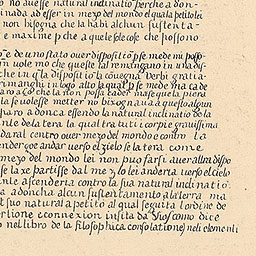 no auesse natural inclinatiõ perche a don-
inada ad esser in mezo del mondo el qual a petito lei
non bisogna che la habi alchun sustenta-
e maxime p che a quele sole cose che possono
de uno stato ouer dispositiõ p se mede
uole mo che queste tal remangano in una dis-
che in q̃la dispositiõ la conuegna Verbi gratia
rimanghi in logo alto la qual p se mede ma cade
cosa che la non possa cader ma se que la pietra
la se uolesse metter no bixognaua a questo algun
paro adonca essendo la natural inclinatiõ de la
nte de la tera la qual tra tuti i corpi e grauissima
da ral centro ouer mezo del mondo e contra la
ender oue andar uerso el zielo se la tera conue
mezo del mondo lei non puo farsi auer altra dispo
se la xe partisse dal mezo lei anderia uerso el cielo
nte ascenderia contro la sua natural inclinatiõ
a adoncha alcun sustentamento a la terra ma
suo natural apetito al qual seguita l ordine de
ertione e connexion insita da dio como dice
nel libro de la filosophica consolatione nei elementi